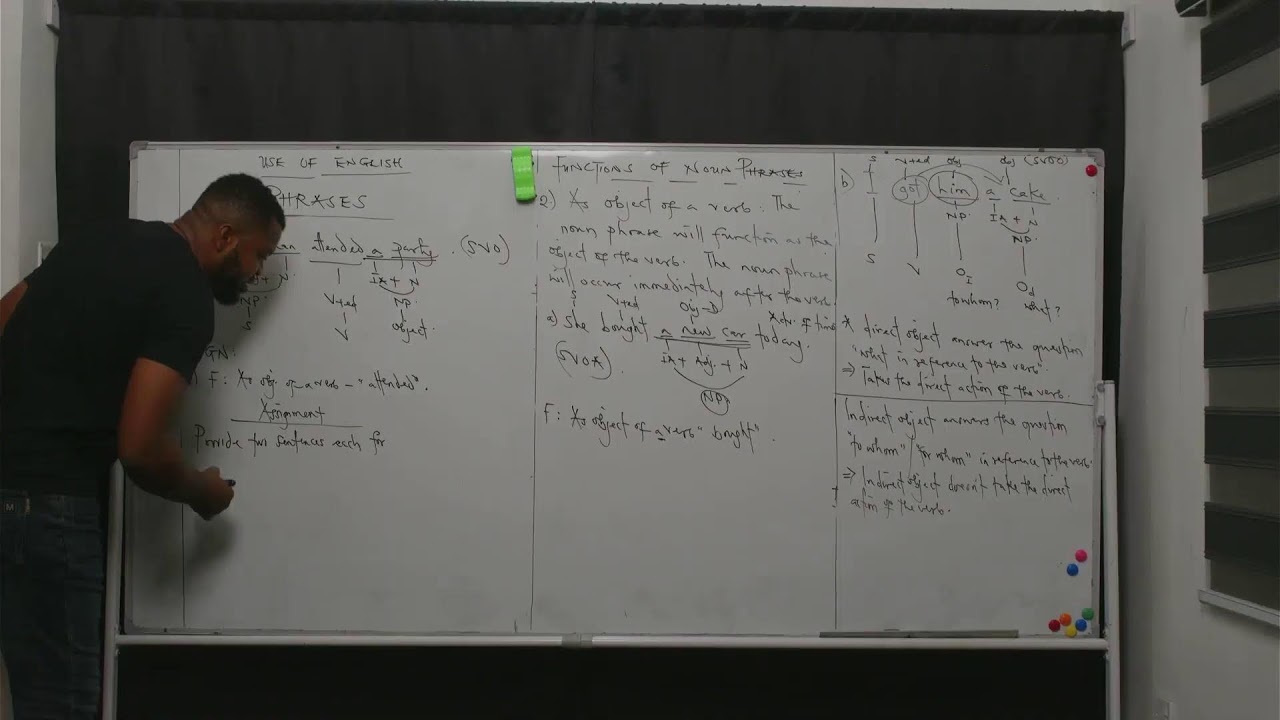 USE OF ENGLISH
PHRASES
attended a party. (SVO)
+ N
IA + N
NP
V+ed
NP
S
V
object.
GN:
F: As obj. of a verb – "attended".
Assignment
Provide two sentences each for
FUNCTIONS OF NOUN PHRASES
2) As object of a verb: The
noun phrase will function as the
object of the verb. The noun phrase
will occur immediately after the verb.
S
V+ed
Obj-D
Adv. of time
a) She bought a new car today.
(SVOA).
IA + Adj. + N
NP
F: As object of a verb "bought".
S
V+ed
obj
obj (SVOO)
b) I got him a cake.
NP
IA + N
NP.
S
V
OI
Od
to whom?
what?
* direct object answer the question
"what in reference to the verb".
⇒ Takes the direct action of the verb.
Indirect object answers the question
"to whom"/"for whom" in reference to the verb.
⇒ Indirect object doesn't take the direct
action of the verb.
M